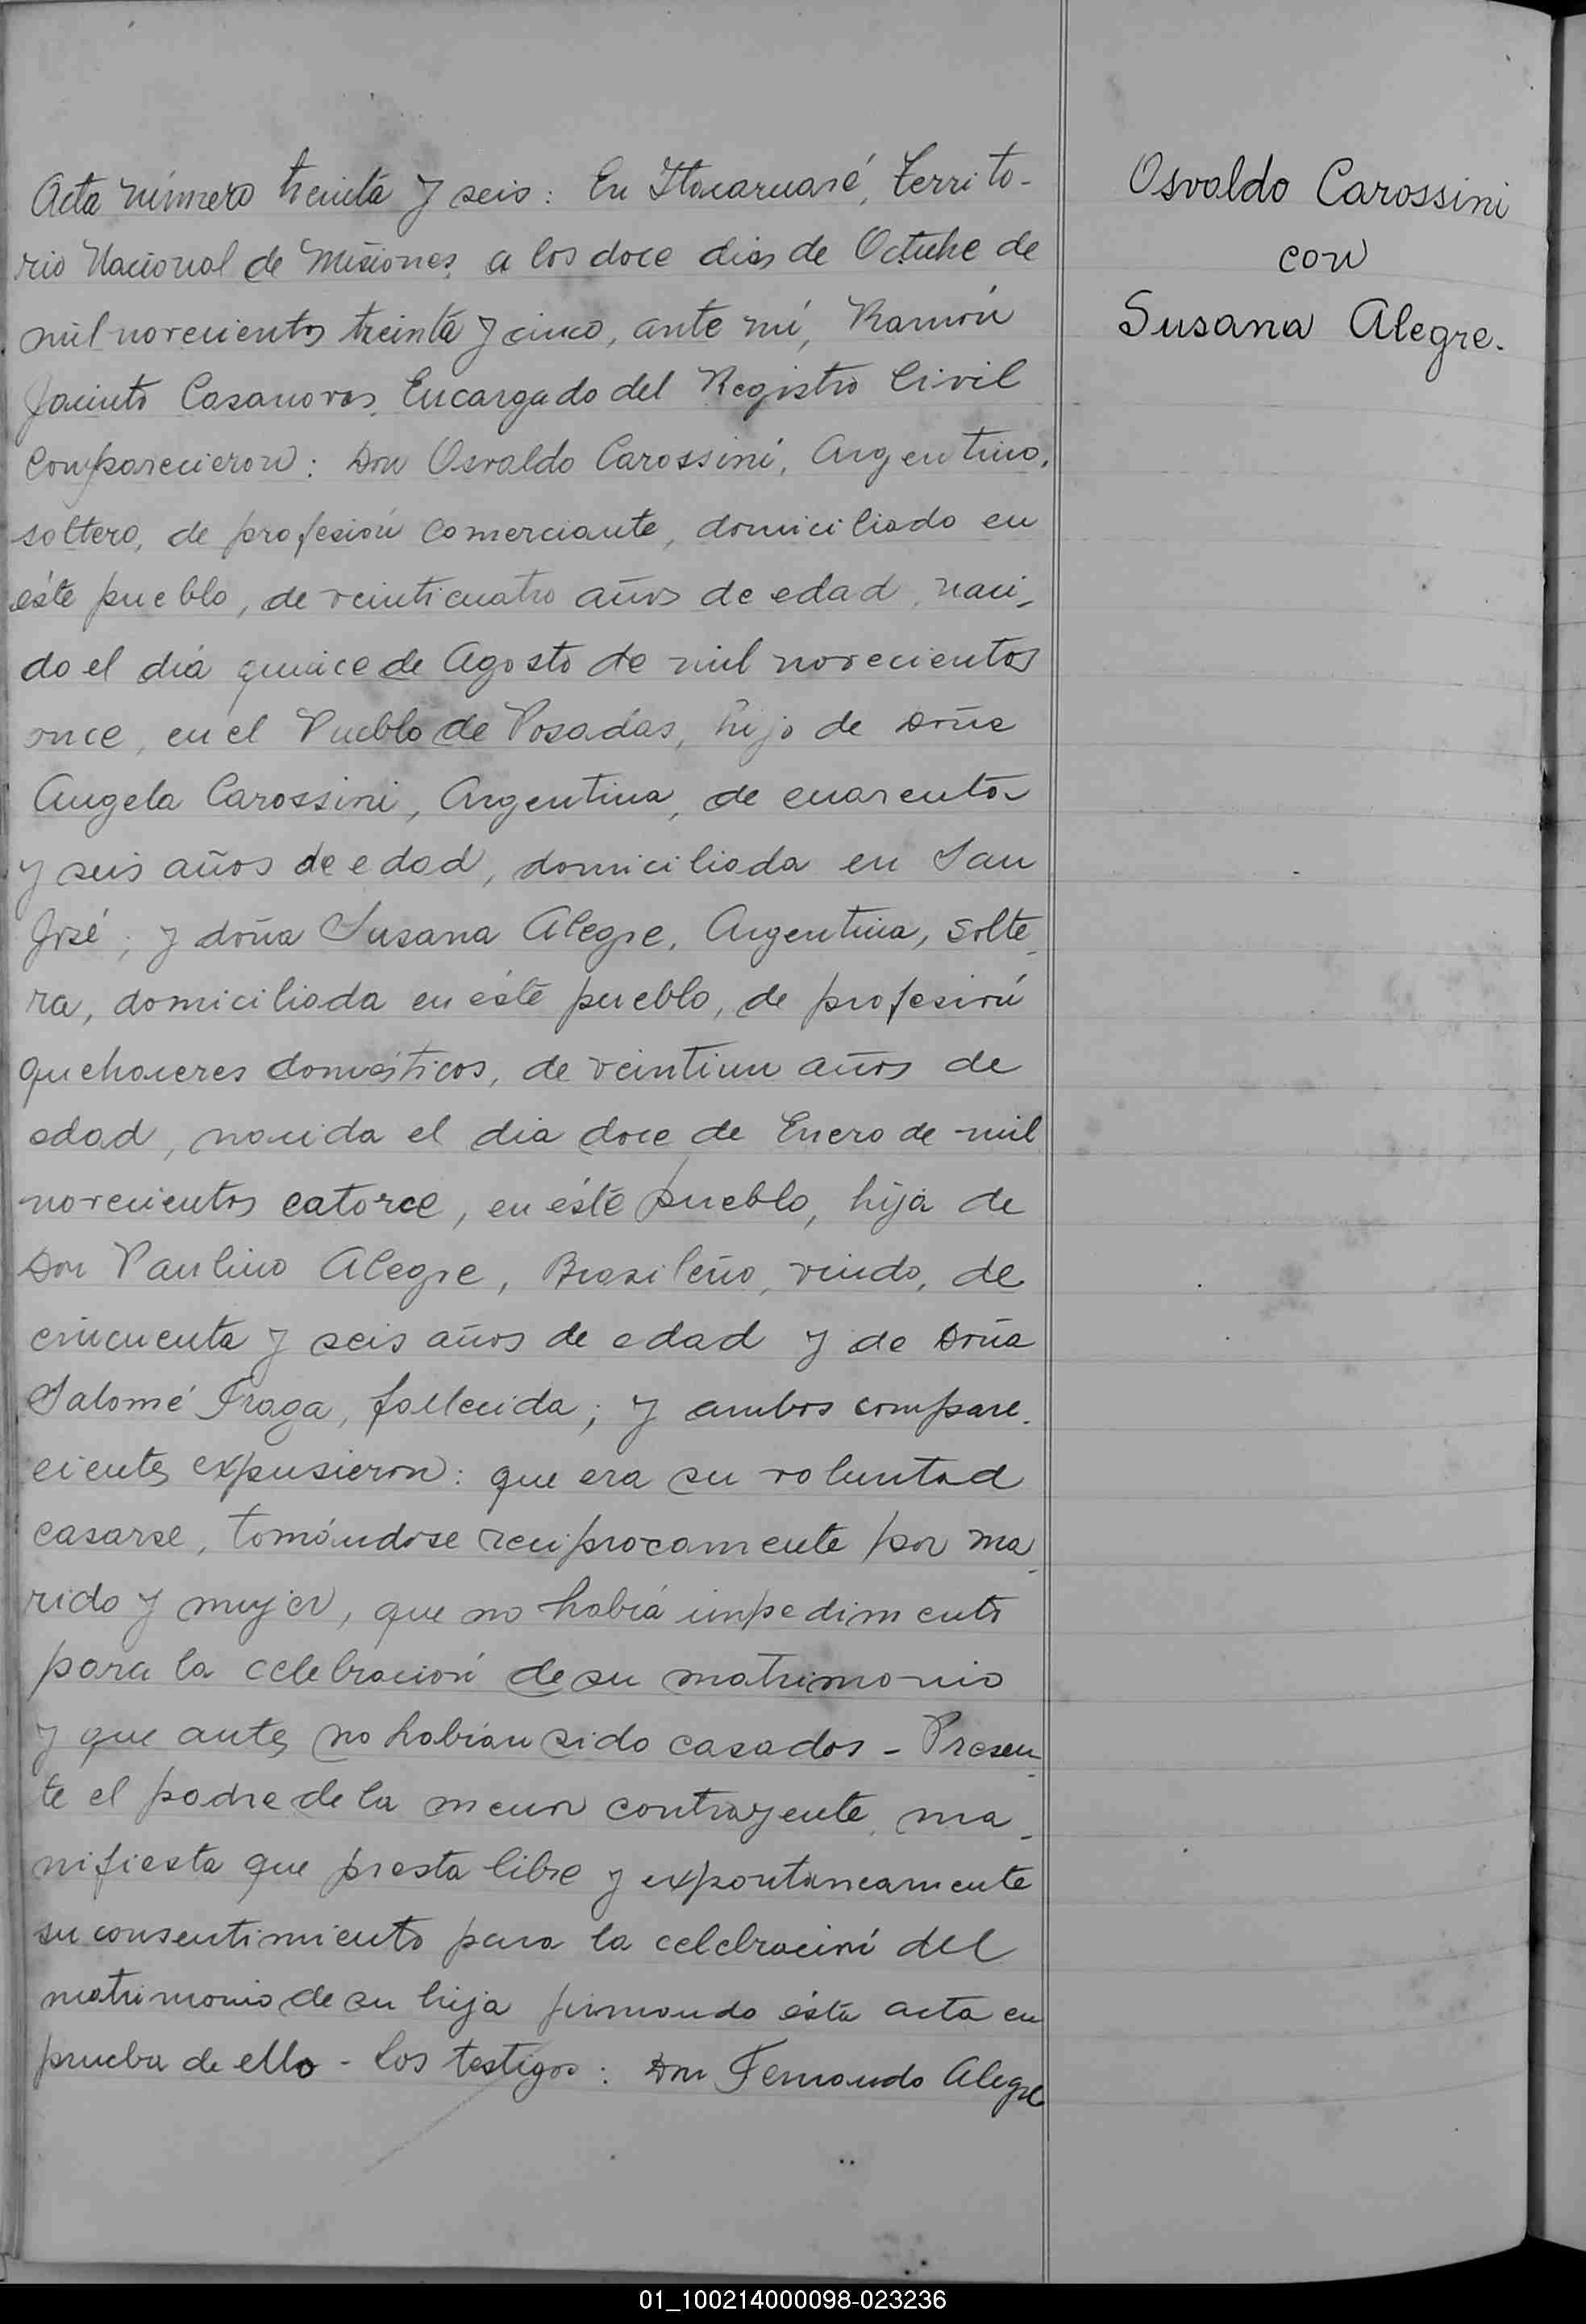 Acta número treinta y seis: En Itacaruaré, Territo-
rio Nacional de Misiones, a los doce dias de Octubre de
mil novecientos treinta y cinco, ante mí, Ramón
Jacinto Casanovas, Encargado del Registro Civil
comparecieron: Don Osvaldo Carossini, Argentino,
soltero, de profesión comerciante, domiciliado en
éste pueblo, de veinticuatro años de edad, naci-
do el día quince de Agosto de mil novecientos
once, en el Pueblo de Posadas, hijo de Doña
Angela Carossini, Argentina, de cuarenta
y seis años de edad, domiciliada en San
José; y doña Susana Alegre, Argentina, solte-
ra, domiciliada en éste pueblo, de profesión
quehaceres domésticos, de veintiun años de
edad, nacida el dia doce de Enero de mil
novecientos catorce, en éste pueblo, hija de
Don Paulino Alegre, Brasileño, viudo, de
cincuenta y seis años de edad y de Doña
Salomé Fraga, fallecida; y ambos compare-
cientes expusieron: que era su voluntad
casarse, tomándose reciprocamente por ma-
rido y mujer, que no había impedimento
para la celebración de su matrimonio
y que antes no habían sido casados - Presen-
te el padre de la menor contrayente, ma-
nifiesta que presta libre y expontáneamente
su consentimiento para la celebración del
matrimonio de su hija firmando ésta acta en
prueba de ello - Los testigos: Don Fernando Alegre
Osvaldo Carossini
con
Susana Alegre.
01_100214000098-023236